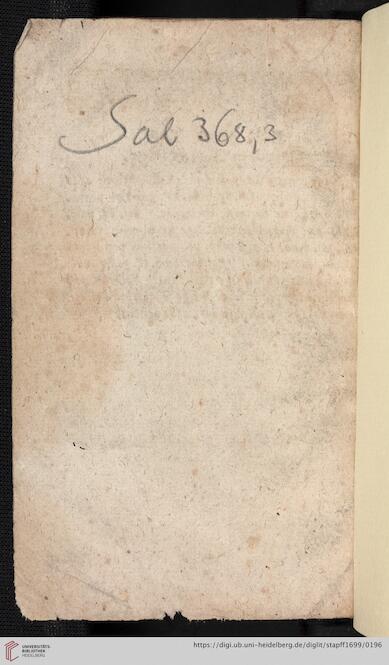 Sal 368,3
UNIVERSITÄTS-
BIBLIOTHEK
HEIDELBERG
https://digi.ub.uni-heidelberg.de/diglit/stapff1699/0196